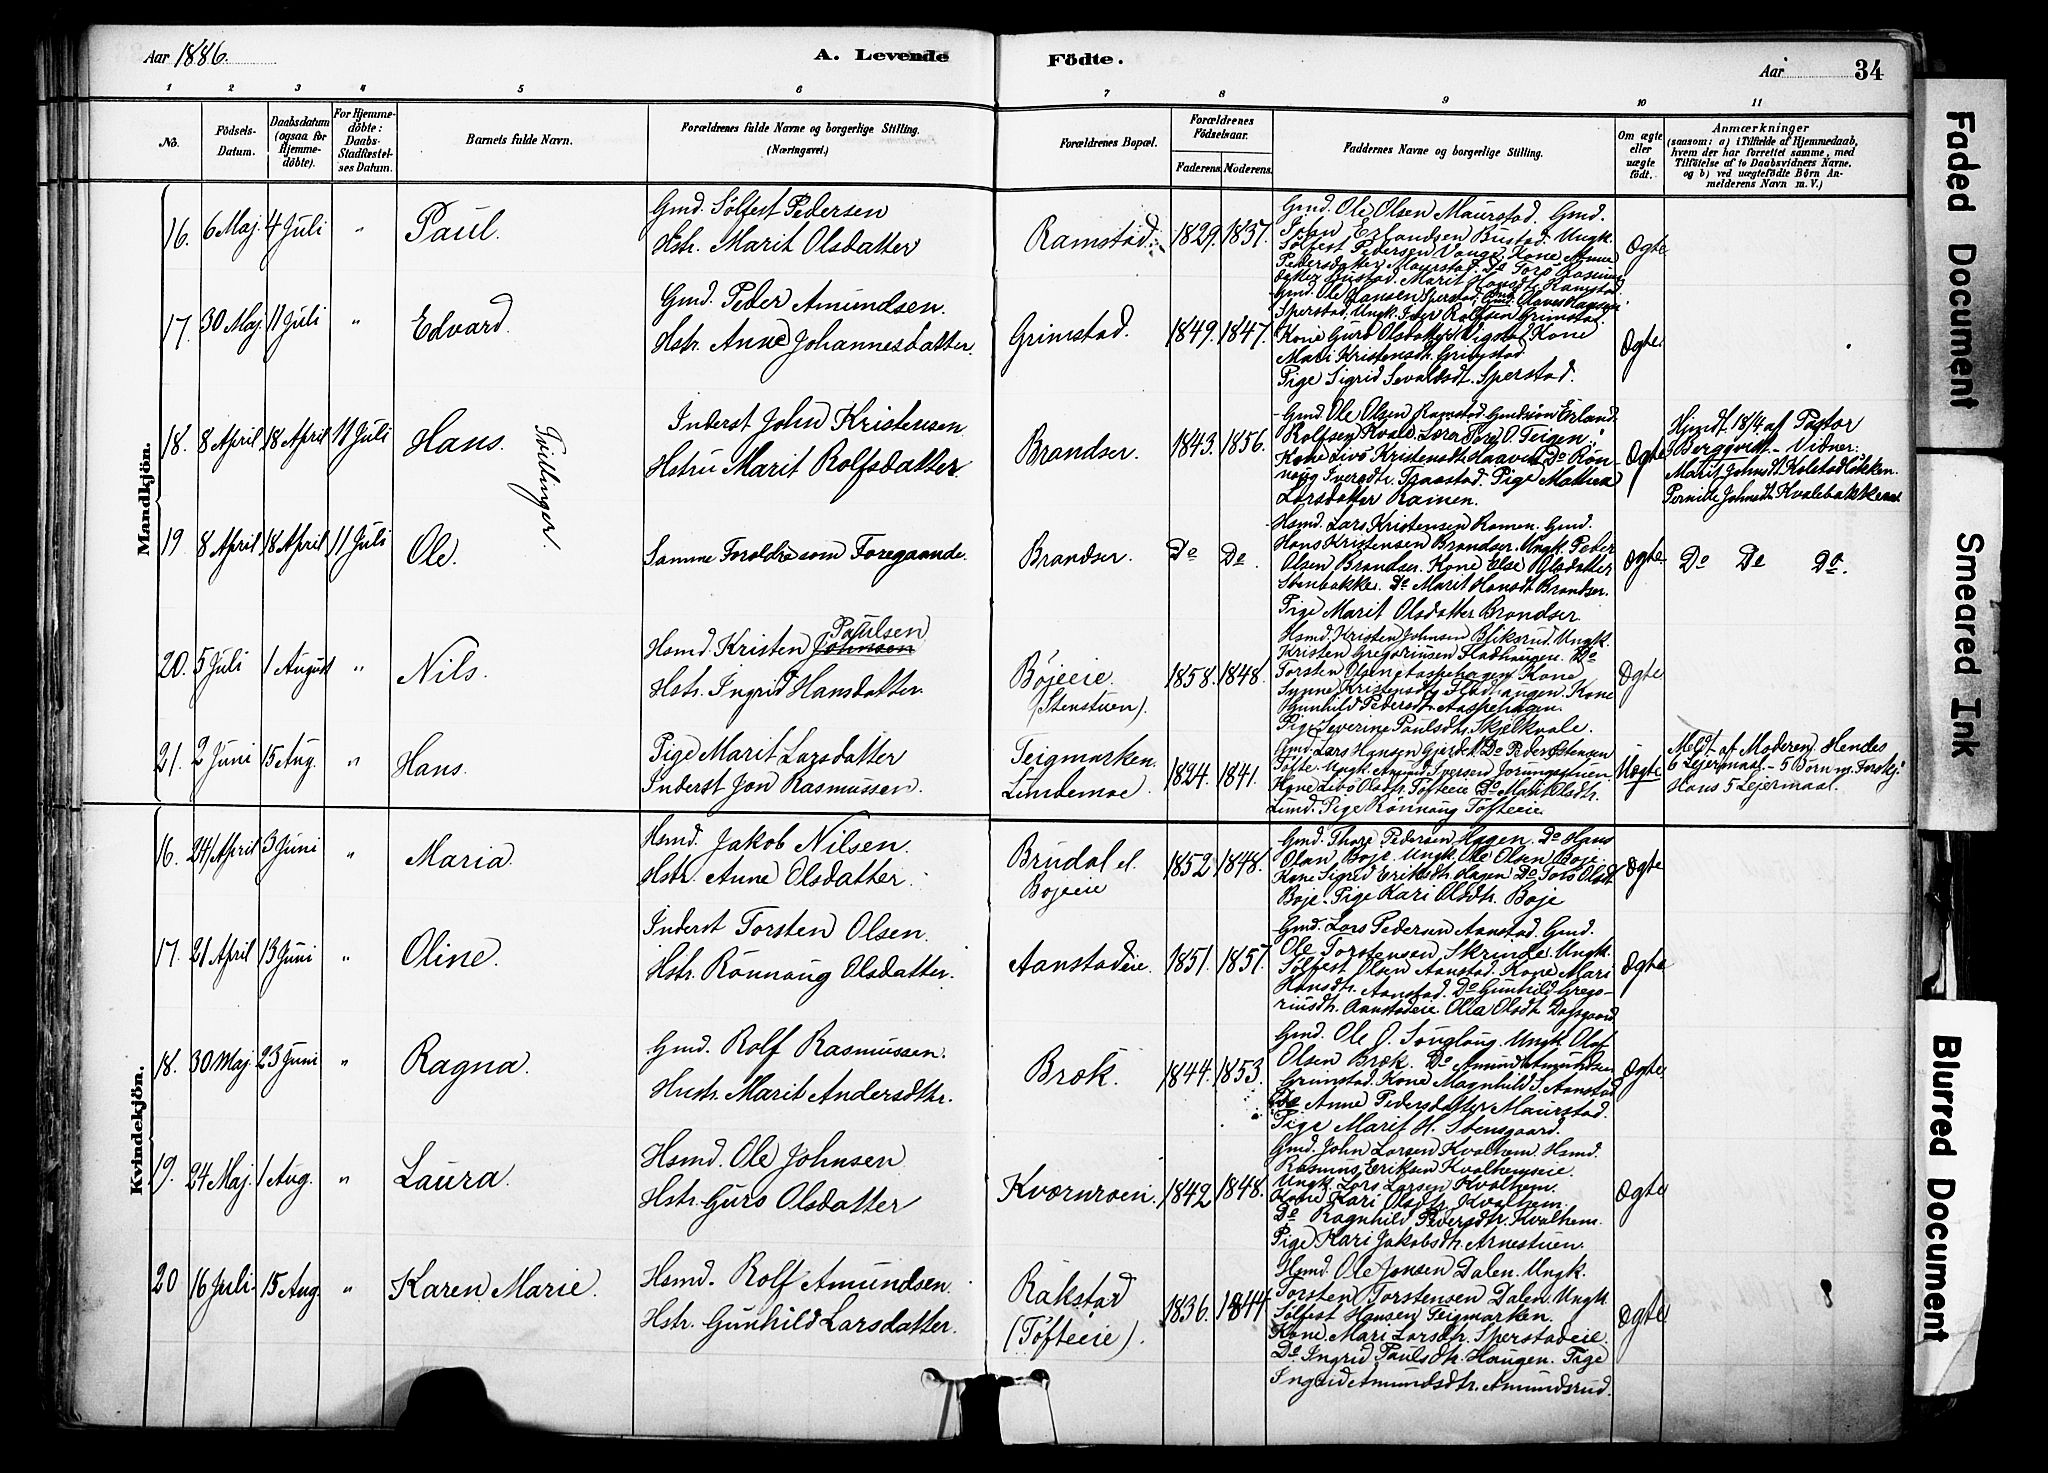 Aar 1886.
A. Levende Födte.
Aar 34
1 2 3 4 5 6 7 8 9 10 11
No.
Födsels-Datum.
Daabsdatum (ogsaa for Hjemme-döbte).
For Hjemme-döbte: Daabs-Stadfæstel-ses Datum.
Barnets fulde Navn.
Forældrenes fulde Navne og borgerlige Stilling. (Næringsvei.)
Forældrenes Bopæl.
Forældrenes Födselsaar.
Faderens. Moderens.
Faddernes Navne og borgerlige Stilling.
Om ægte eller uægte födt.
Anmærkninger
(saasom: a) i Tilfælde af Hjemmedaab, hvem der har forrettet samme, med Tilföielse af to Daabsvidners Navne, og b) ved uægtefödte Börn An-melderens Navn m. V.)
Mandkjön.
16. 6 Maj. 4 Juli " Paul.
Gmd. Sølfest Pedersen
Hstr. Marit Olsdatter
Ramstad. 1829. 1837.
Gmd. Ole Olsen Maurstad. Gmd.
John Erlandsen Bustad. Ungk.
Sølfest Pedersen Vange. Kone Anne
Pedersdatter Maurstad. Do Toro Rasmus
datter Bustad. Marit Hansdt. Ramstad
Ægte
17. 30 Maj. 11 Juli " Edvard.
Gmd. Peder Amundsen.
Hstr. Anne Johannesdatter.
Grimstad. 1849. 1847.
Gmd. Ole Hansen Sperstad,
Sperstad, Ungk. Iver Rolfsen Grimstad.
Kone Guro Olsdatter Vigstad Kone
Mari Kristensdt.
Pige Sigrid Sevaldsdt. Sperstad.
Ægte
18. 8 April 18 April 11 Juli Hans.
Tvillinger.
Inderst John Kristensen
Hstru Marit Rolfsdatter.
Brandser. 1843. 1856.
Gmd. Ole Olsen Ramstad. Gmdsøn Erland
Rolfsen Kvale. Lærer Tore O. Teigen.
Kone Livø Kristensdtr Haaven Do Røn-
naug Iversdtr. Traastad. Pige Mathea
Larsdatter Ramen.
Ægte
Hjmdt. 18/4 af Pastor
Bergqvist. - Vidner:
Marit Johnsdt. Kolstadløkken.
Pernille Johnsdt. Kvalebakken
19 8 April 18 April 11 Juli Ole.
Samme Foroldre som Foregaaende.
Brandser. Do Do
Hsmd. Lars Kristensen Ramen. Gmd.
Hans Kristensen Brandser. Ungk. Peder
Olsen Brandser. Kone Else Olsdatter
Stenbakke. Do Marit Hansdt. Brandser.
Pige Marit Olsdatter Brandser
Ægte
Do Do Do.
20. 5 Juli 1 August " Nils.
Hsmd. Kristen Johnsen Paulsen
Hstr. Ingrid Hansdatter.
Bøjeeie. (Stenstuen). 1858. 1848.
Hsmd. Kristen Johnsen Bliksrud. Ungk.
Kristen Gregoriusen Fladhaugen. Do
Torsten Olsen Aaspehagen Kone
Synne Kristensdtr Fladhaugen. Kone
Gunhild Pedersdt. Aaspehagen.
Pige Severine Paulsdtr. Skjelkvale.
Ægte
21. 2 Juni 15 Aug. " Hans.
Pige Marit Larsdatter
Inderst Jon Rasmussen.
Teigmarken.
Lindemoe. 1824. 1841.
Gmd. Lars Hansen Gjerdet. Do Peder Estensen
Tofte. Ungk. Amund Iversen
Kone Livø Olsdtr. Tofteeie Do Marit Olsdtr.
Lund. Pige Rønnaug Tofteeie.
Uægte
Meldt af Moderen. Hendes
6 Lejermaal - 5 Børn m. Forskj.
Hans 5 Lejermaal.
Kvindekjön.
16. 24/April 3 Juni " Maria.
Hsmd. Jakob Nilsen.
Hstr. Anne Olsdatter.
Brudal el.
Bøjeeie 1852 1848.
Gmd. Thore Pedersen Hagen. Do Hans
Olsen Bøje. Ungk. Ole Olsen Bøje.
Kone Sigrid Eriksdtr. Hagen Do Toro Olsdt
Bøje. Pige Kari Olsdtr. Bøje
Ægte
17. 21 April 13 Juni " Oline.
Inderst Torsten Olsen.
Hstr. Rønnaug Olsdatter.
Aanstadeie. 1851. 1857.
Gmd. Lars Pedersen Aanstad. Gmd.
Ole Torstensen Skrinde. Ungk.
Sølfest Olsen Aanstad. Kone Mari
Hansdtr. Aanstad. Do Gunhild Grego-
riusdtr. Aanstadeie. Olea Olsdt. Dalsgaard
Ægte
18. 30 Maj. 23 Juni " Ragna.
Gmd. Rolf Rasmussen.
Hustr. Marit Andersdtr.
Bræk. 1844. 1853.
Gmd. Ole J. Ungk. Olaf
Olsen Bræk. Do Amund Amundsen
Grimstad. Kone Magnhild I. Aanstad
Do Anne Pedersdatter Maurstad.
Pige Marit H. Stensgaard.
Ægte
19. 24 Maj. 1 Aug. " Laura.
Hsmd. Ole Johnsen
Hstr. Guro Olsdatter
Kværnroen. 1842 1848.
Gmd. John Larsen Kvalhem. Hsmd.
Rasmus Eriksen Kvalhemseie.
Ungk. Lars Larsen Kvalhem.
Kone Kari Olsdtr. Kvalhem.
Do Ragnhild Pedersdtr. Kvalhem.
Pige Kari Jakobsdtr. Arnestuen.
Ægte
20 16 Juli. 15 Aug. " Karen Marie.
Hsmd. Rolf Amundsen
Hstr. Gunhild Larsdatter.
Rakstad
(Tofteeie). 1836. 1844
Hsmd. Ole Jonsen Dalen. Ungk.
Torsten Torstensen Dalen. Ungk.
Sølfest Hansen Teigmarken.
Kone Mari Larsdtr. Sperstadeie.
Do Ingrid Paulsdtr. Haugen. Pige
Ingrid Amundsdtr. Amundsrud.
Ægte
Faded Document
Smeared Ink
Blurred Document